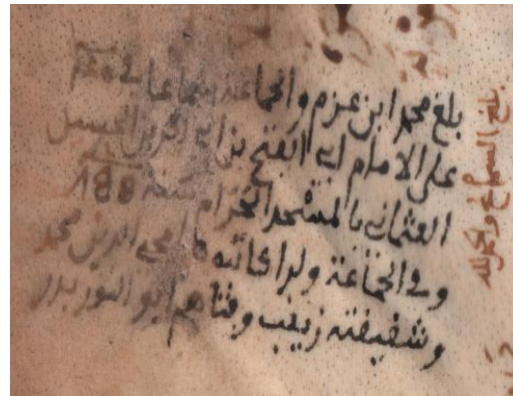 بلغ محمد ابن عزم والجماعة سماعا في
على الامام ابي الفتح بن ابي
العثماني بالمسجد الحرام سنة
وفي الجماعة ولدا كاتبه محيي الدين محمد
وشقيقته زينب وفتاهم ابو النور بدر
بلغ السماع والحمد لله